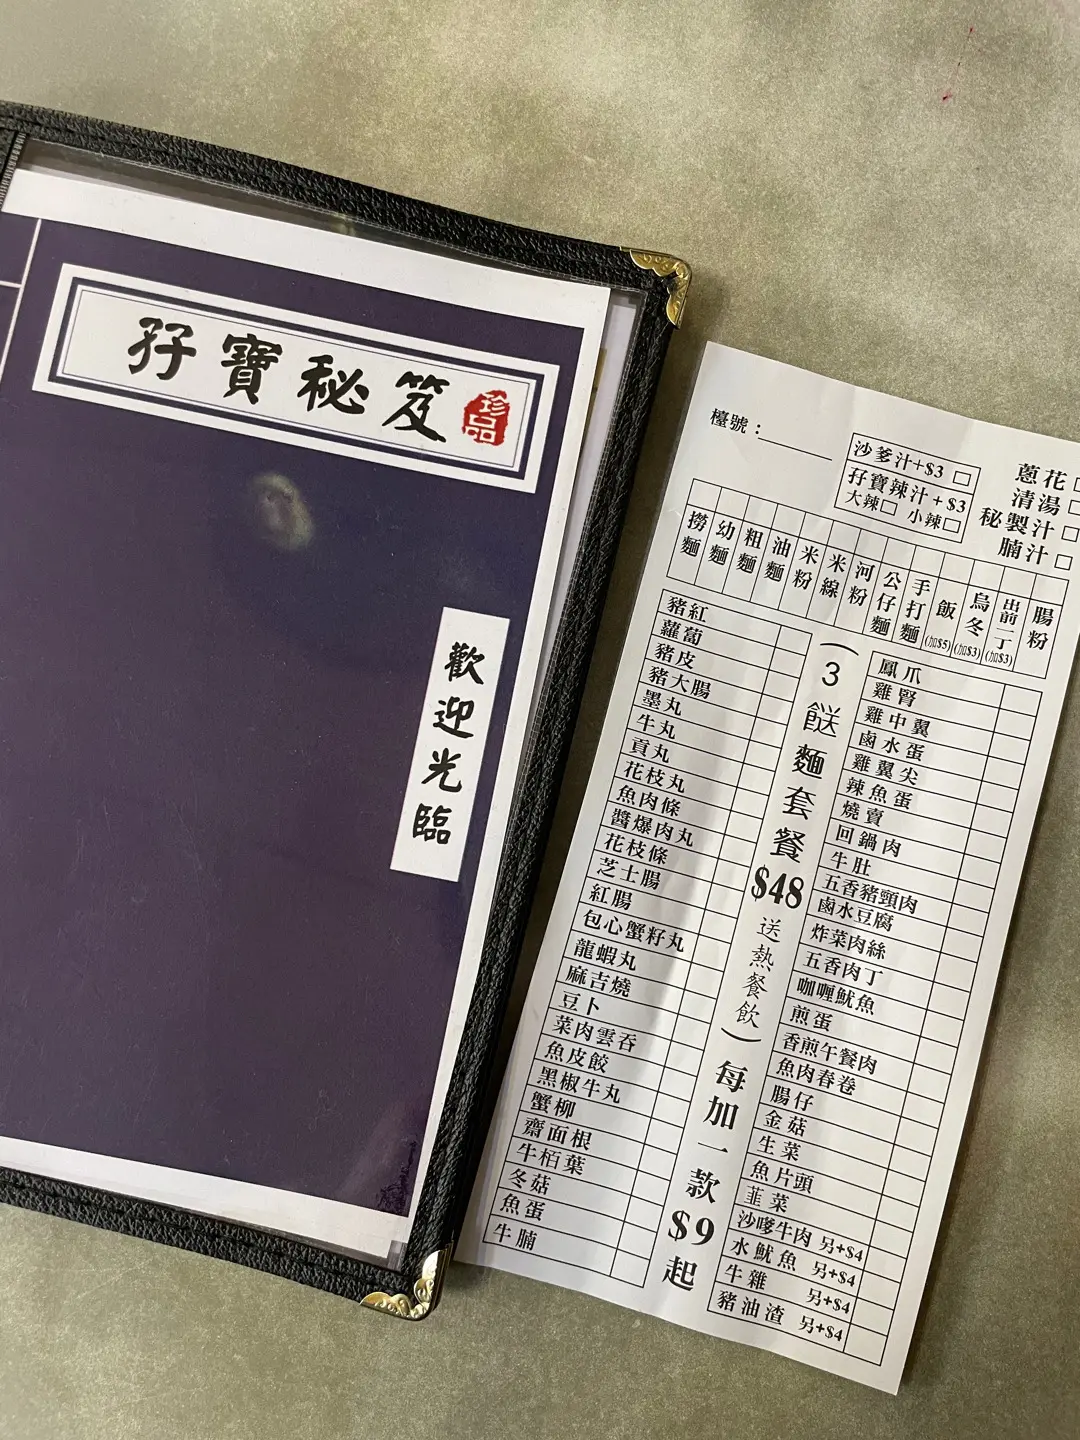 孖寶秘笈
珍品
歡迎光臨
檯號：
沙爹汁+$3
孖寶辣汁+$3
大辣 小辣
蔥花
清湯
秘製汁
腩汁
撈麵
幼麵
粗麵
油麵
米粉
米線
河粉
公仔麵
手打麵
飯(加$5)
烏冬(加$3)
出前一丁(加$3)
腸粉
豬紅
蘿蔔
豬皮
豬大腸
墨丸
牛丸
貢丸
花枝丸
魚肉條
醬爆肉丸
花枝條
芝士腸
紅腸
包心蟹籽丸
龍蝦丸
麻吉燒
豆卜
菜肉雲吞
魚皮餃
黑椒牛丸
蟹柳
齋面根
牛栢葉
冬菇
魚蛋
牛腩
(3餸麵套餐$48送熱餐飲)每加一款$9起
鳳爪
雞腎
雞中翼
鹵水蛋
雞翼尖
辣魚蛋
燒賣
回鍋肉
牛肚
五香豬頸肉
鹵水豆腐
炸菜肉絲
五香肉丁
咖喱魷魚
煎蛋
香煎午餐肉
魚肉春卷
腸仔
金菇
生菜
魚片頭
韭菜
沙嗲牛肉 另+$4
水魷魚 另+$4
牛雜 另+$4
豬油渣 另+$4